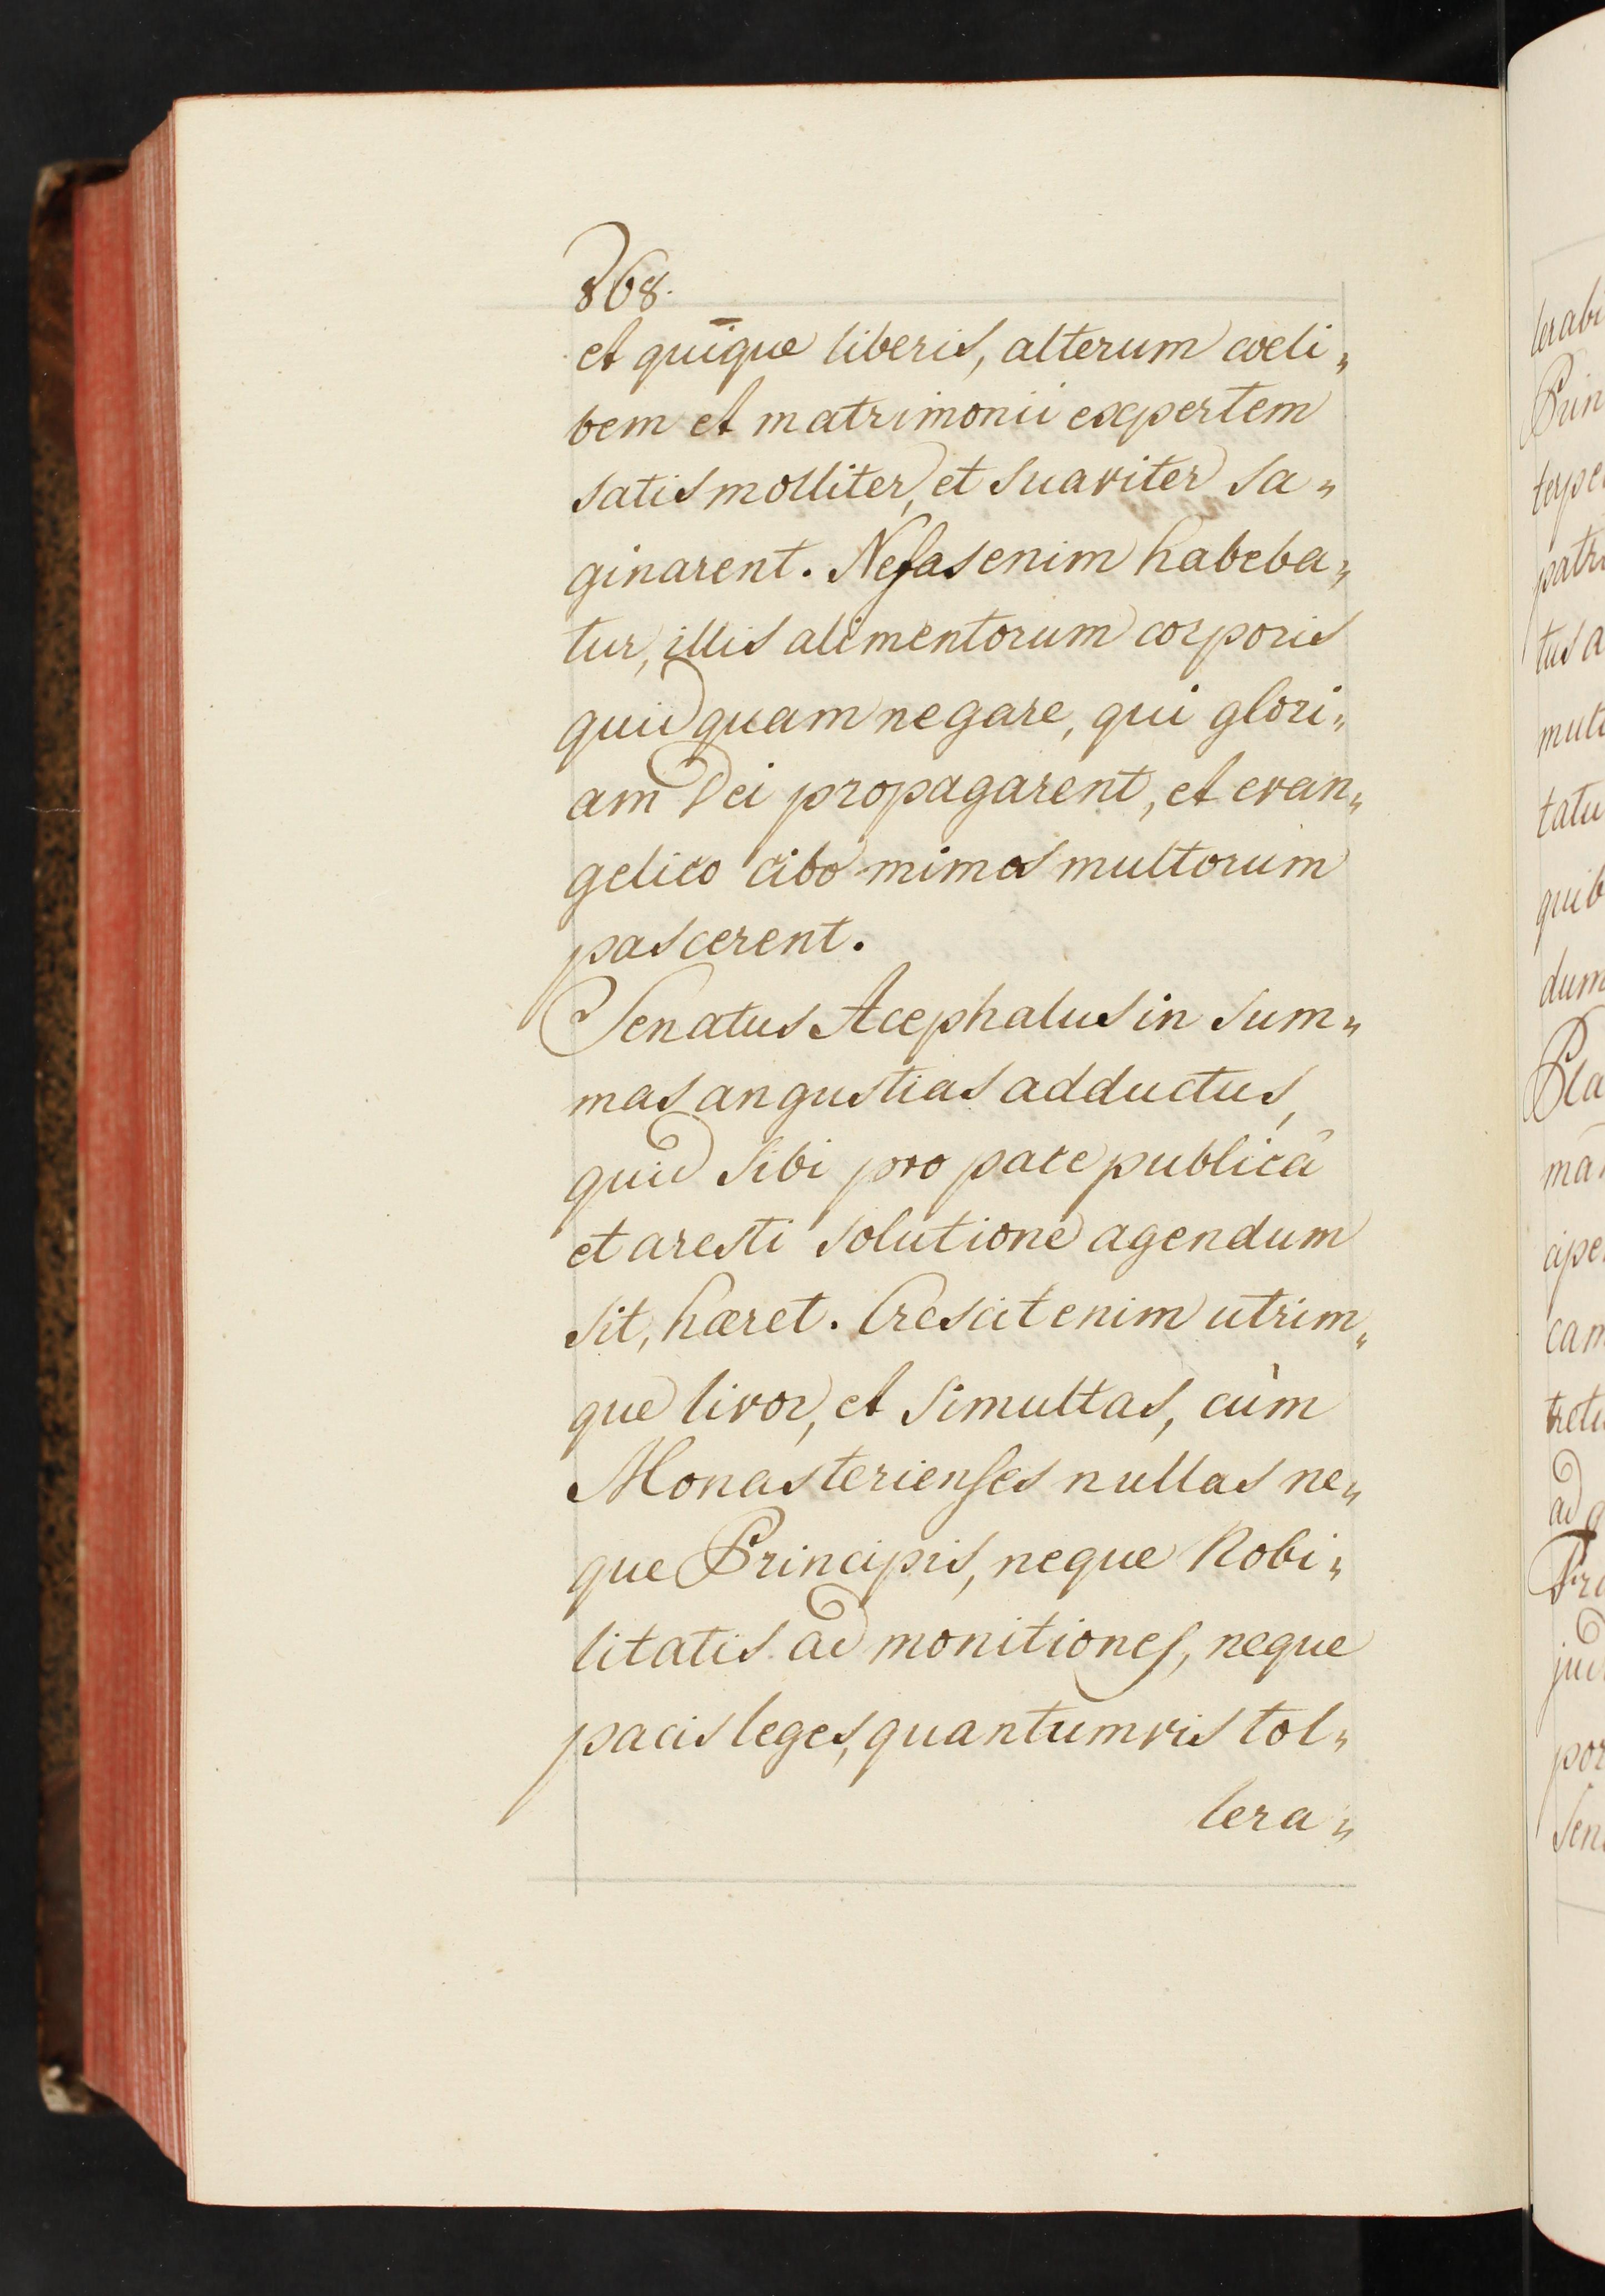 868.
et quīque liberis, alterum coeli„
bem et matrimonii expertem
satis molliter, et suaviter sa„
ginarent. Nefas enim habeba„
tur, illis alimentorum corporis
quidquam negare, qui glori„
am Dei propagarent, et evan„
gelico cibo mimos multorum
pascerent.
Senatus Acephalus in sum„
mas angustias adductus,
quid sibi pro pace publicâ
et aresti solutione agendum
sit, hæret. Crescit enim utrim„
que livor, et simultas, cùm
Monasterienses nullas ne„
que Principis, neque Nobi„
litatis admonitiones, neque
pacis leges, quantumvis tol„
lera„
lerabi
Prin
tepe
patri
tus a
mult
tatu
quib
dum
Pla
ma
cipe
cam
ad q
por